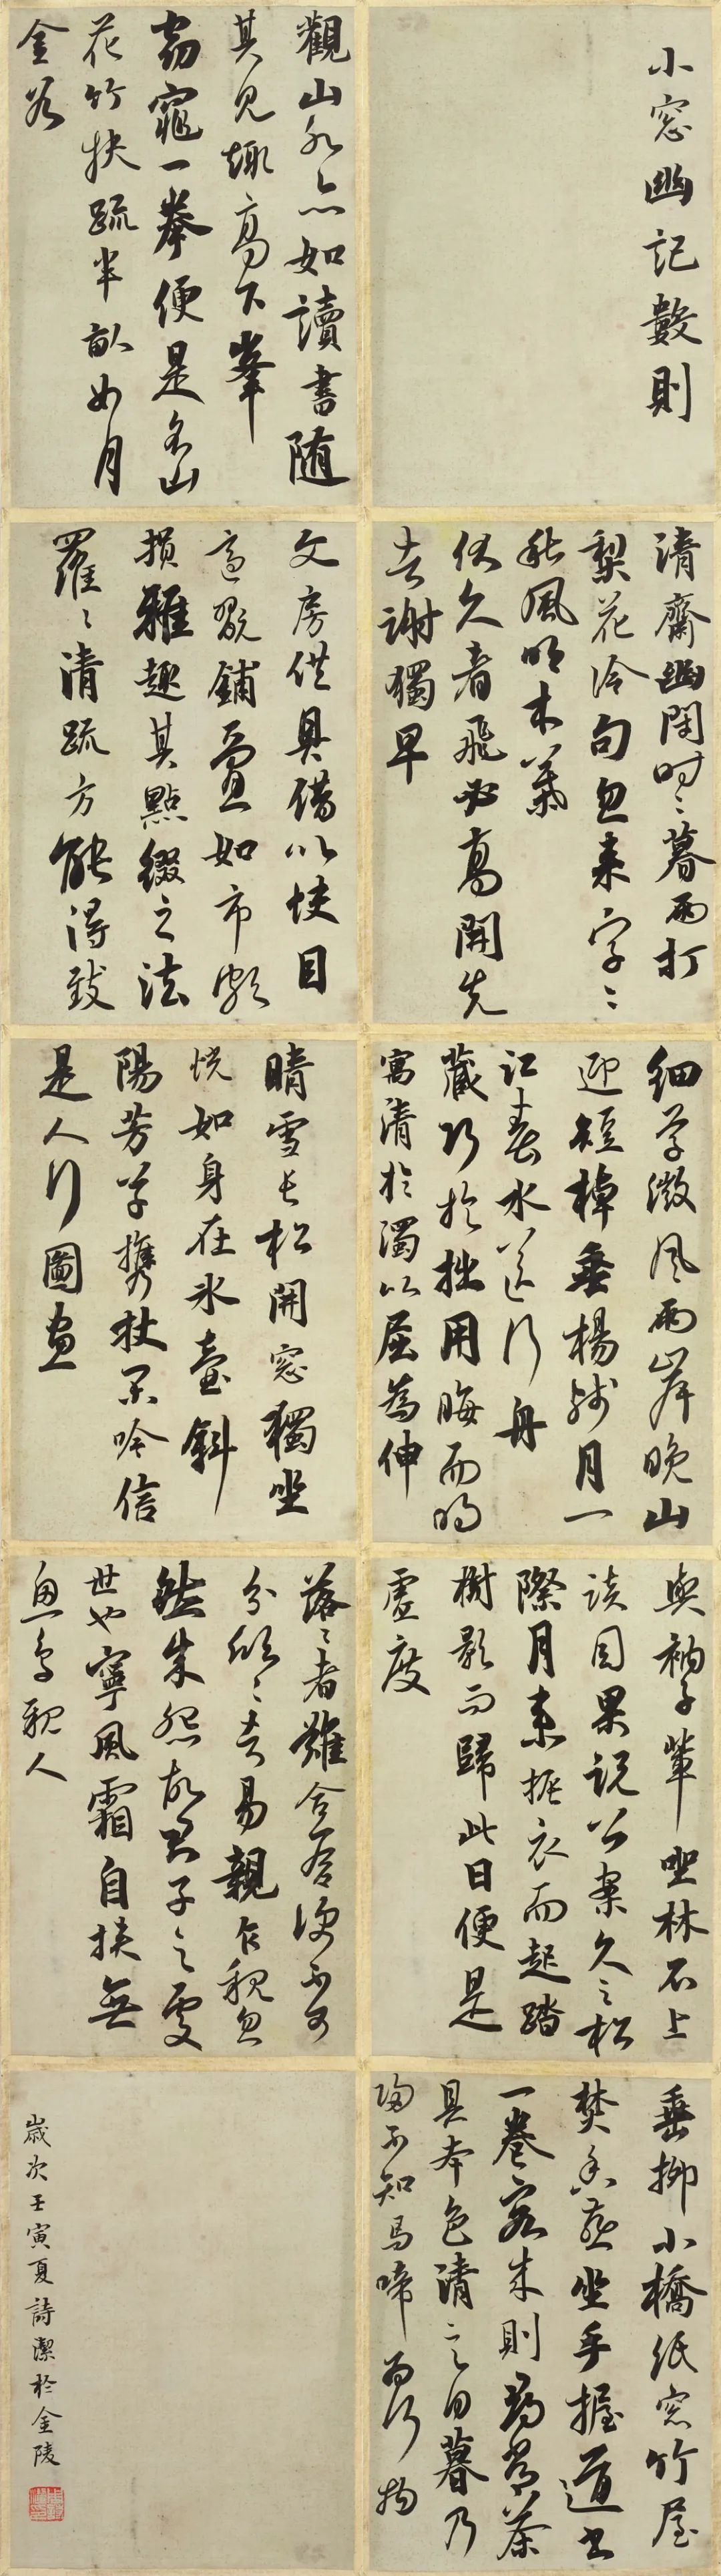 小窓幽記數則
觀山水亦如讀書随
其見趣高下峯
窈窕一拳便是名山
花竹扶疏半畝如月
金谷
清齋幽閉時〻暮雨打
梨花冷句忽来字〻
秋風吹木葉
伏久者飛必高開先
者謝獨早
文房供具借以快目
適翫鋪疊如市頗
損雅趣其點綴之法
羅〻清疏方能得致
細草微風兩岸晚山
迎短棹垂楊殘月一
江春水送行舟
藏巧於拙用晦而明
寓清於濁以屈為伸
晴雪長松開窓獨坐
恍如身在冰壺斜
陽芳草攜杖閒吟信
是人行圖畫
與衲子輩坐林石上
談因果說公案久之松
際月来振衣而起踏
樹影而歸此日便是
虛度
落〻者難合一合便不可
分欣〻者易親乍親忽
然成怨故君子之處
世也寧風霜自挾無
魚鳥親人
垂柳小橋紙窓竹屋
焚香燕坐手握道書
一卷客来則尋常茶
具本色清言日暮乃
歸不知馬啼為何物
歲次壬寅夏詩潔於金陵